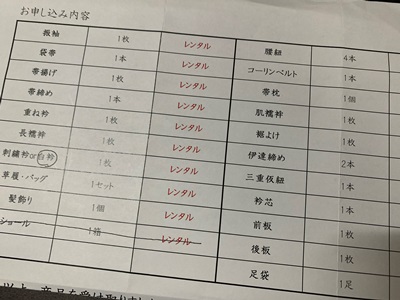 お申し込み内容
振袖 1枚 レンタル 腰紐 4本
袋帯 1本 レンタル コーリンベルト 1本
帯揚げ 1枚 レンタル 帯枕 1個
帯締め 1本 レンタル 肌襦袢 1枚
重ね衿 1枚 レンタル 裾よけ 1枚
長襦袢 1枚 レンタル 伊達締め 2本
刺繍衿or白衿 1枚 レンタル 三重仮紐 1本
草履・バッグ 1セット レンタル 衿芯 1本
髪飾り 1個 レンタル 前板 1枚
ショール 1箱 レンタル 後板 1枚
足袋 1足
商品を受け取りまし